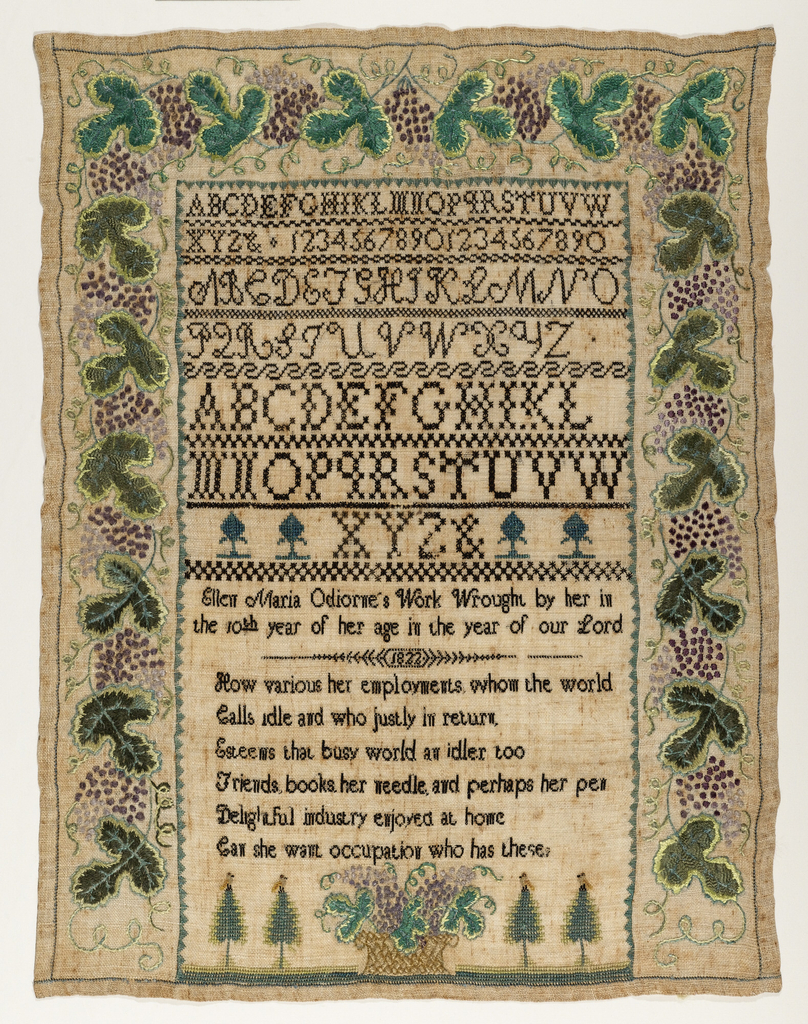 ABCDEFGHIKLMNOPQRSTUVW
XYZ& 12345678901234567890
ABCDEFGHIKLMNO
PQRSTUVWXYZ
ABCDEFGHIKL
MNOPQRSTUVW
XYZ&
Ellen Maria Odiorne's Work Wrought by her in
the 10th year of her age in the year of our Lord
1822
How various her employments, whom the world
Calls idle and who justly in return,
Esteems that busy world an idler too
Friends, books, her needle, and perhaps her pen
Delightful industry enjoyed at home
Can she want occupation who has these;